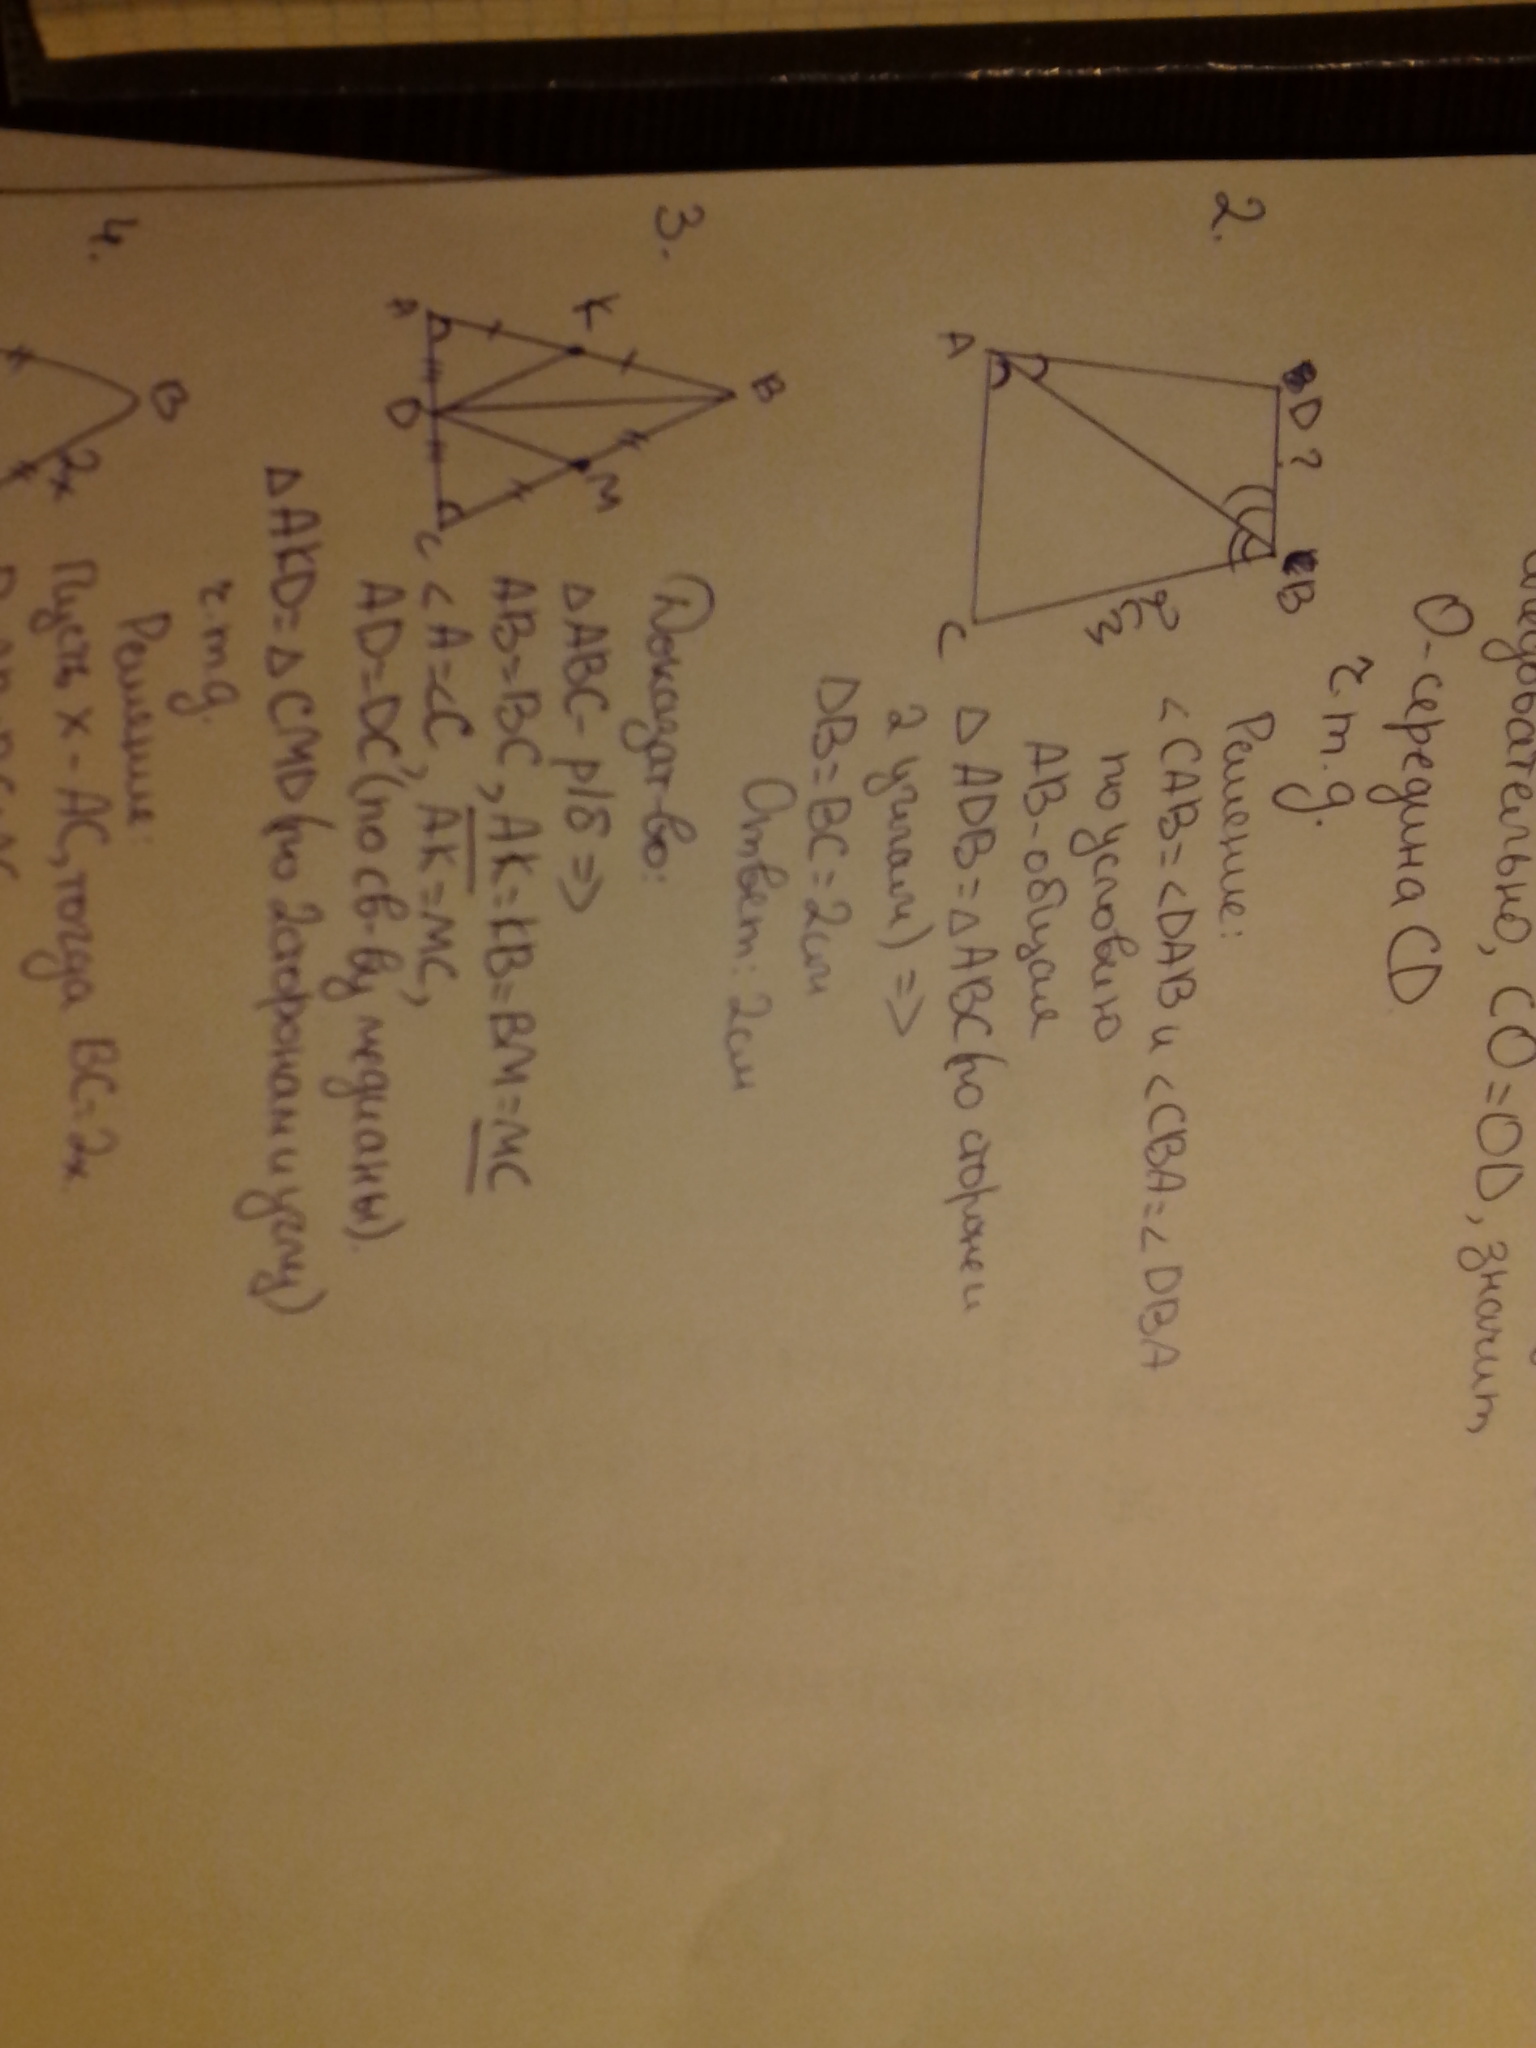 следовательно, CO=OD, значит
O-середина CD
ч.т.д.
2.
D ?
B
A
C
2см
Решение:
<CAB=<DAB и <CBA=<DBA
по условию
AB-общая
△ADB=△ABC(по стороне и
2 углам) =>
DB=BC=2см
Ответ: 2см
3.
B
K
M
A
D
C
Доказат-во:
△ABC-р/б =>
AB=BC, AK=KB=BM=MC
<A=<C, AK=MC,
AD=DC(по св-ву медианы).
△AKD=△CMD(по 2сторонам и углу)
ч.т.д.
4.
B
2x
Решение:
Пусть x-AC, тогда BC=2x